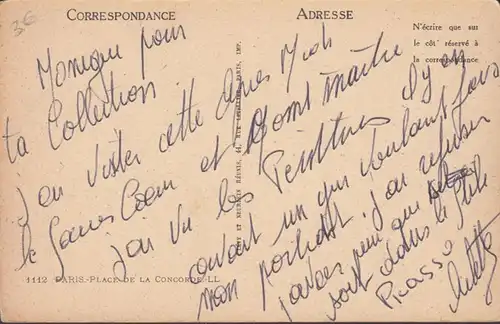 CORRESPONDANCE
ADRESSE
N'écrire que sur
le côté réservé à
la correspondance
Monique pour
ta Collection
j'ai visiter cette après Midi
le Sacré Coeur et Montmartre
j'ai vu les Peintres il y en
avait un qui voulait faire
mon portrait. j'ai refuser
j'avais peur que
soit dans le style
Picasso
1112 PARIS.-PLACE DE LA CONCORDE-LL